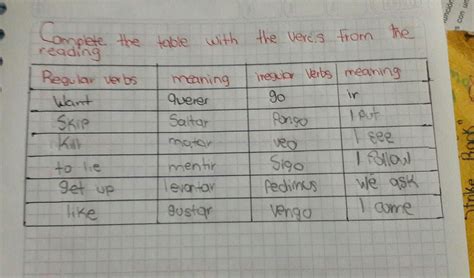 Complete the table with the vercis from the
reading
Regular verbs meaning irregular verbs meaning
Want querer go ir
Skip Saltar Pongo I Put
Kill matar veo I see
to lie mentir Sigo I follow
get up levantar Pedimus we ask
like gustar vengo I come